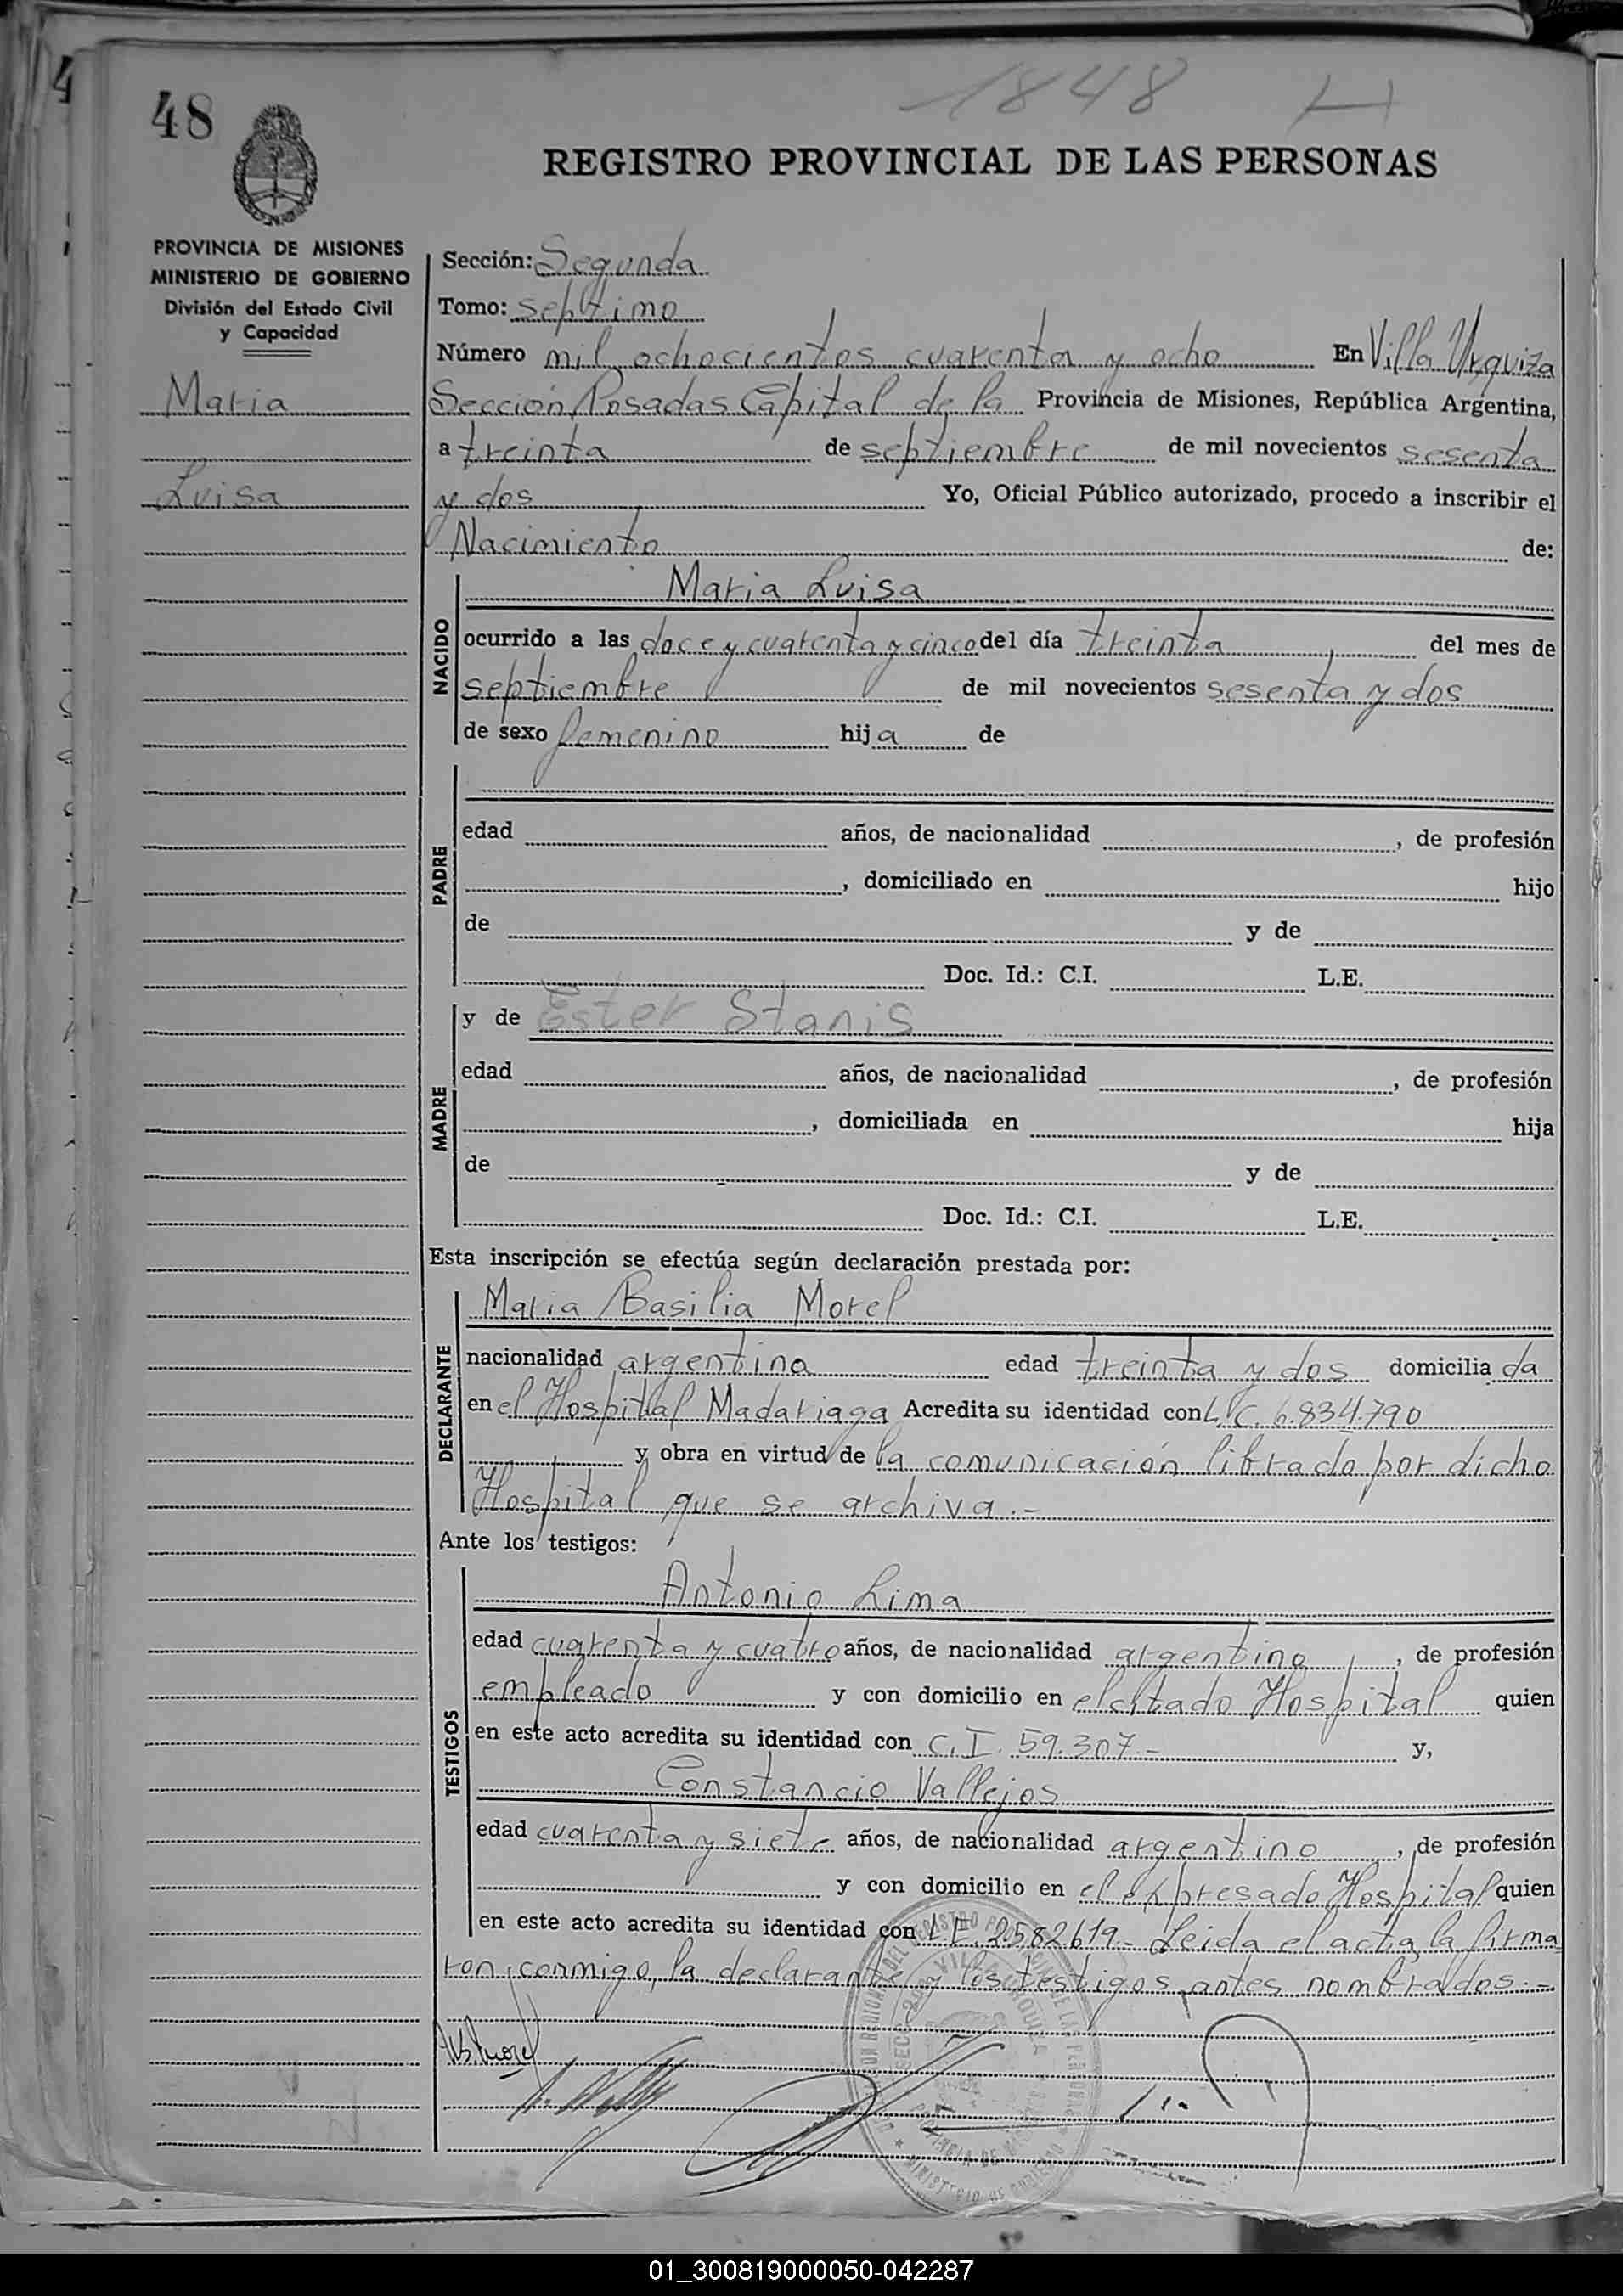 1848 H
48
REGISTRO PROVINCIAL DE LAS PERSONAS
PROVINCIA DE MISIONES
MINISTERIO DE GOBIERNO
División del Estado Civil
y Capacidad
Maria
Luisa
Sección: Segunda
Tomo: septimo
Número mil ochocientos cuarenta y ocho En Villa Urquiza
Sección Posadas Capital de la Provincia de Misiones, República Argentina,
a treinta de septiembre de mil novecientos sesenta
y dos Yo, Oficial Público autorizado, procedo a inscribir el
Nacimiento de:
NACIDO
Maria Luisa
ocurrido a las doce y cuarenta y cinco del día treinta del mes de
septiembre de mil novecientos sesenta y dos
de sexo femenino hija de
PADRE
edad años, de nacionalidad , de profesión
, domiciliado en hijo
de y de
Doc. Id.: C.I. L.E.
MADRE
y de Ester Stanis
edad años, de nacionalidad , de profesión
, domiciliada en hija
de y de
Doc. Id.: C.I. L.E.
Esta inscripción se efectúa según declaración prestada por:
DECLARANTE
Maria Basilia Morel
nacionalidad argentina edad treinta y dos domicilia da
en el Hospital Madariaga Acredita su identidad con L.C. 6.834.790
y obra en virtud de la comunicación librada por dicho
Hospital que se archiva.-
Ante los testigos:
TESTIGOS
Antonio Lima
edad cuarenta y cuatro años, de nacionalidad argentino, de profesión
empleado y con domicilio en el citado Hospital quien
en este acto acredita su identidad con C.I. 59.307.- y,
Constancio Vallejos
edad cuarenta y siete años, de nacionalidad argentino, de profesión
y con domicilio en el expresado Hospital quien
en este acto acredita su identidad con L.E. 2.582.619.- Leida el acta, la firma
ron, conmigo, la declarante y los testigos antes nombrados.-
01_300819000050-042287